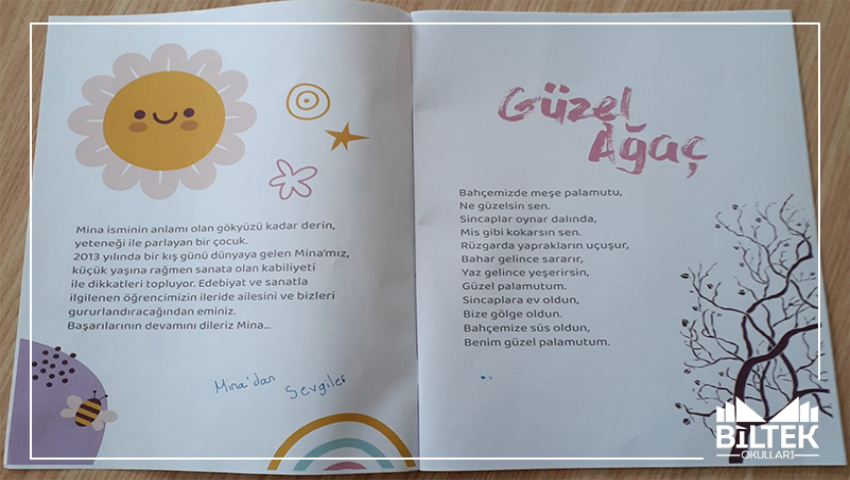 Mina isminin anlamı olan gökyüzü kadar derin,
yeteneği ile parlayan bir çocuk.
2013 yılında bir kış günü dünyaya gelen Mina'mız,
küçük yaşına rağmen sanata olan kabiliyeti
ile dikkatleri topluyor. Edebiyat ve sanatla
ilgilenen öğrencimizin ileride ailesini ve bizleri
gururlandıracağından eminiz.
Başarılarının devamını dileriz Mina...
Mina'dan Sevgiler
Güzel
Ağaç
Bahçemizde meşe palamutu,
Ne güzelsin sen.
Sincaplar oynar dalında,
Mis gibi kokarsın sen.
Rüzgarda yaprakların uçuşur,
Bahar gelince sararır,
Yaz gelince yeşerirsin,
Güzel palamutum.
Sincaplara ev oldun,
Bize gölge oldun.
Bahçemize süs oldun,
Benim güzel palamutum.
BİLTEK
OKULLARI